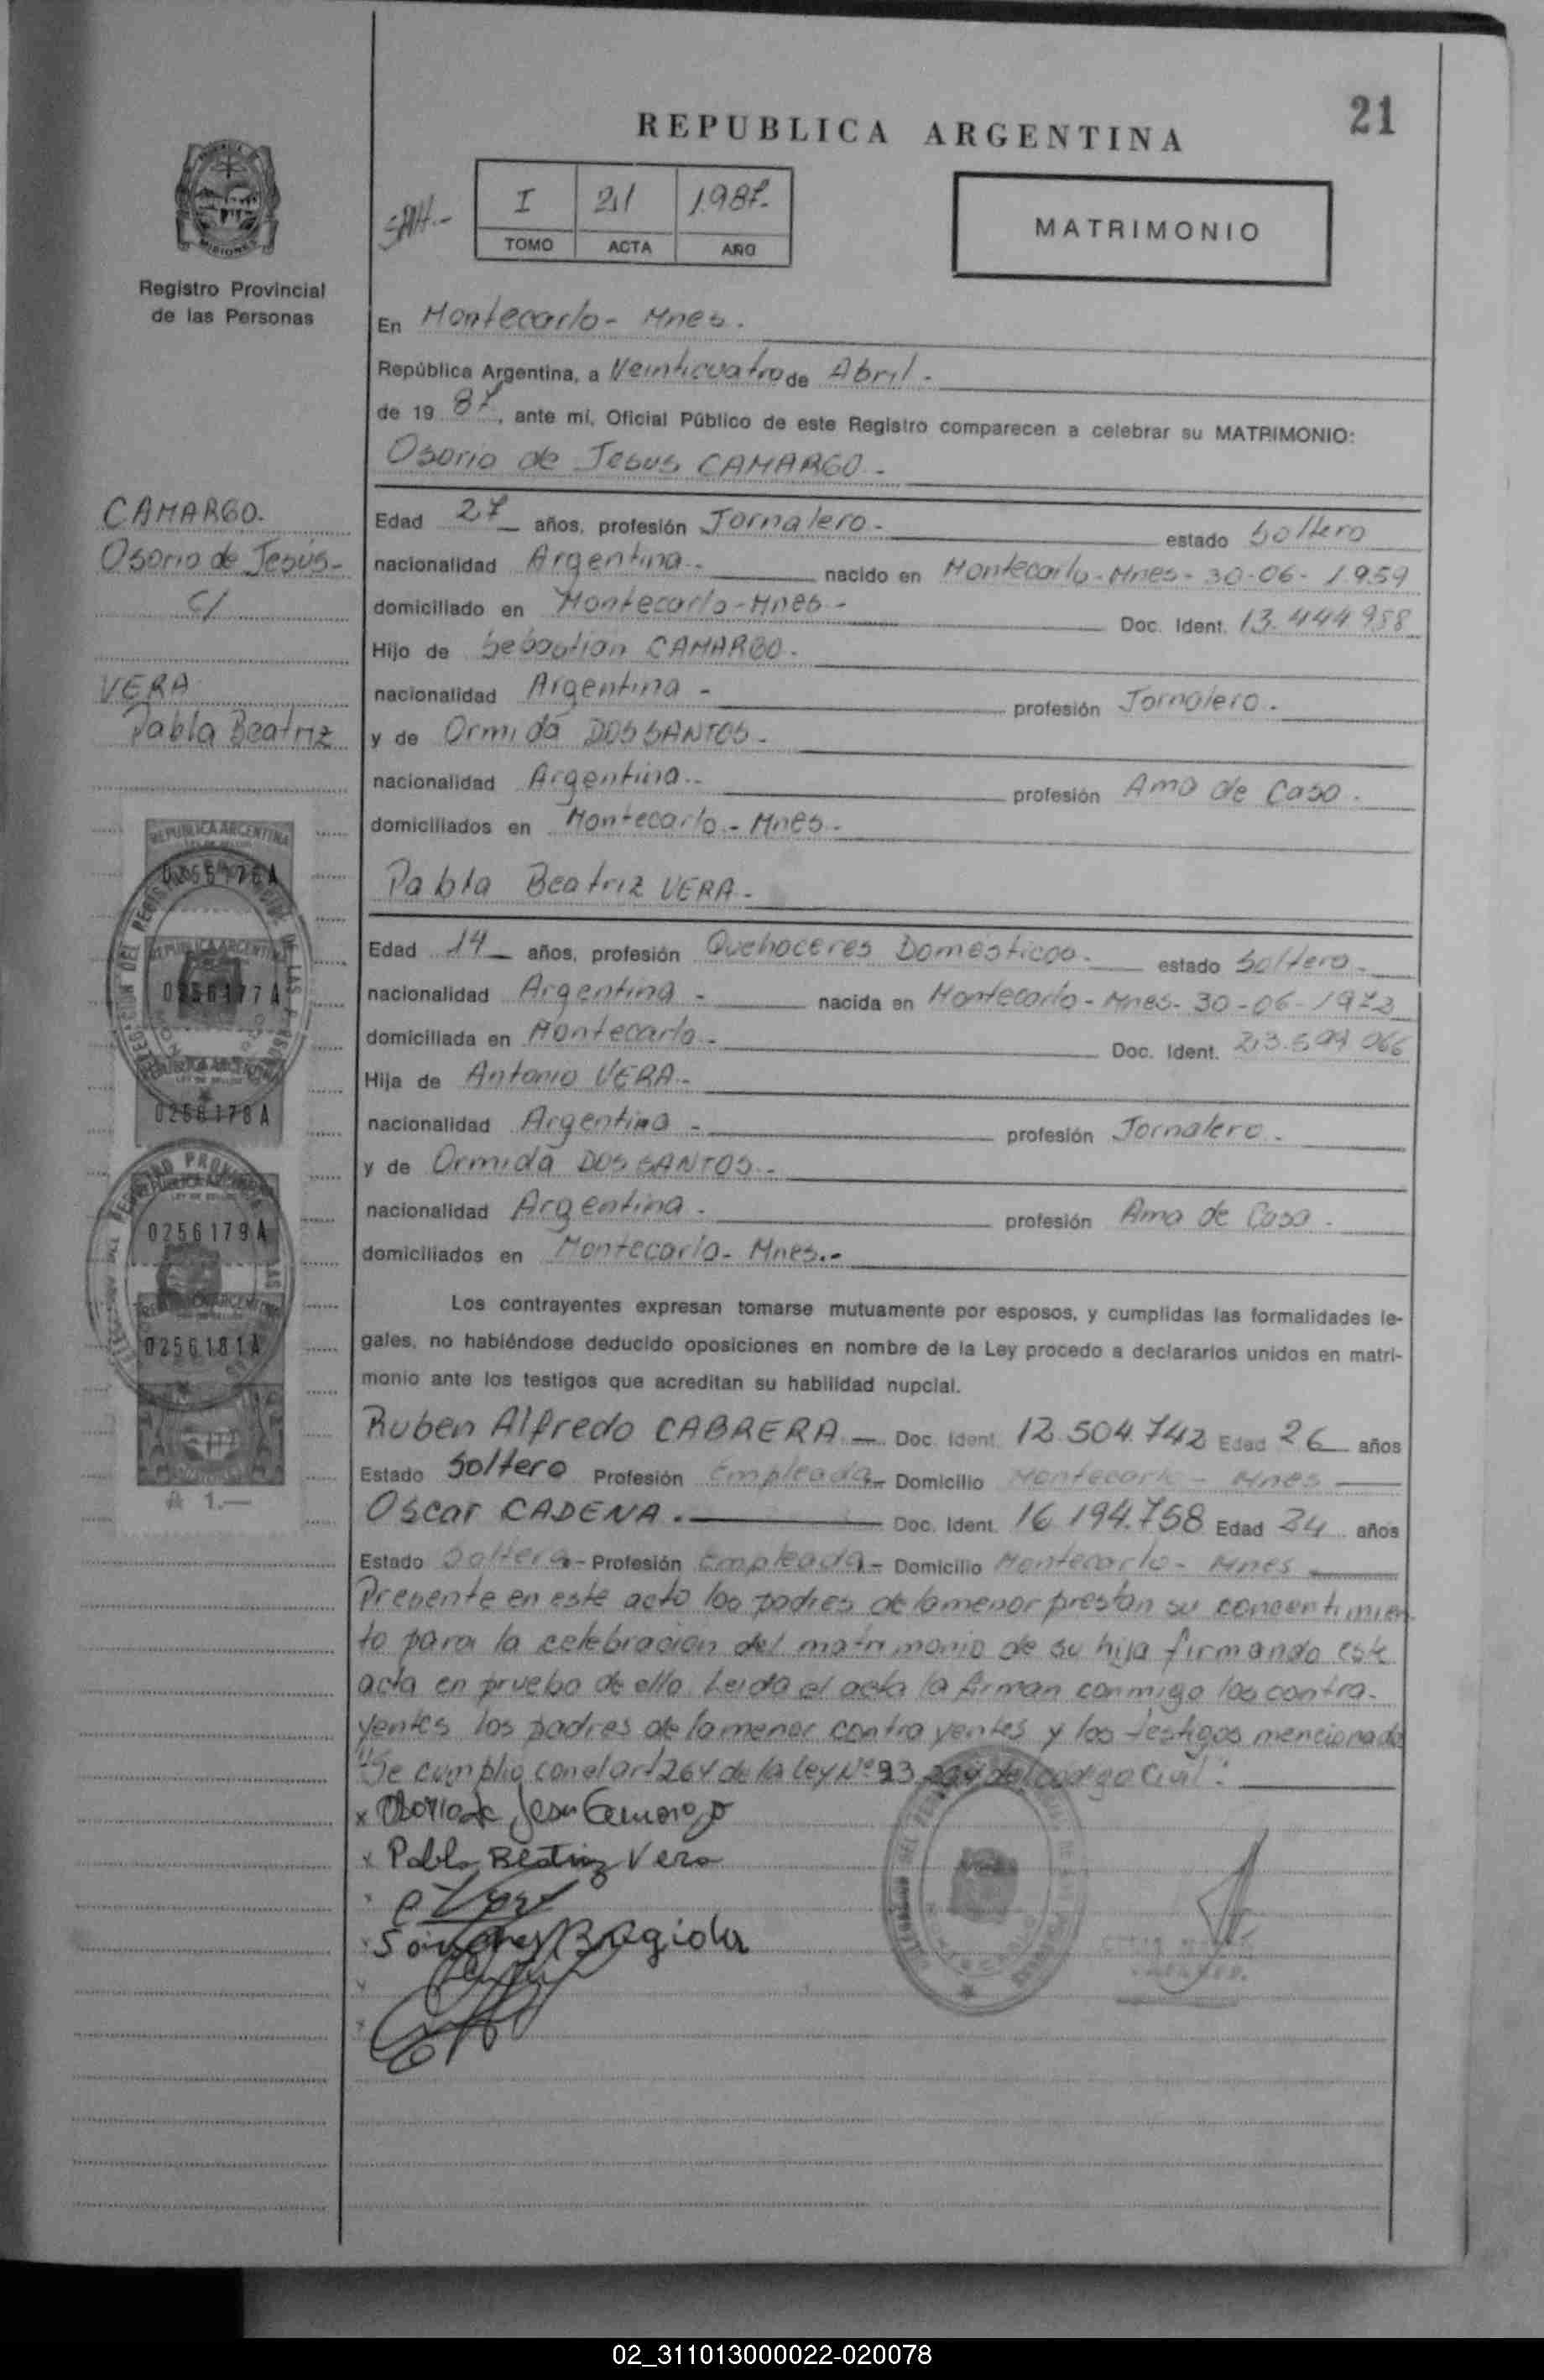 21
REPUBLICA ARGENTINA
I 21 1.987.-
TOMO ACTA AÑO
MATRIMONIO
MISIONES
Registro Provincial
de las Personas
En Montecarlo - Mnes.
República Argentina, a Veinticuatro de Abril.-
de 19 87, ante mí, Oficial Público de este Registro comparecen a celebrar su MATRIMONIO:
Osorio de Jesus CAMARGO.-
CAMARGO.
Osorio de Jesús-
c/
VERA
Pabla Beatriz
Edad 27 años, profesión Jornalero.- estado Soltero
nacionalidad Argentina.- nacido en Montecarlo-Mnes- 30-06-1.959
domiciliado en Montecarlo-Mnes- Doc. Ident. 13.444.958
Hijo de Sebastian CAMARGO.
nacionalidad Argentina - profesión Jornalero.
y de Ormida DOS SANTOS.-
nacionalidad Argentina.- profesión Ama de Casa.
domiciliados en Montecarlo - Mnes.
Pabla Beatriz VERA.-
Edad 14 años, profesión Quehaceres Domésticos.- estado Soltera.-
nacionalidad Argentina - nacida en Montecarlo - Mnes- 30-06-1972
domiciliada en Montecarlo.- Doc. Ident. 23.599 066
Hija de Antonio VERA.-
nacionalidad Argentina - profesión Jornalero.
y de Ormida DOS SANTOS.-
nacionalidad Argentina. profesión Ama de Casa.
domiciliados en Montecarlo - Mnes.-
Los contrayentes expresan tomarse mutuamente por esposos, y cumplidas las formalidades le-
gales, no habiéndose deducido oposiciones en nombre de la Ley procedo a declararlos unidos en matri-
monio ante los testigos que acreditan su habilidad nupcial.
Ruben Alfredo CABRERA.- Doc. Ident. 12.504.742 Edad 26 años
Estado Soltero Profesión Empleada.- Domicilio Montecarlo - Mnes
Oscar CADENA. Doc. Ident. 16.194.758 Edad 24 años
Estado Soltera- Profesión Empleada- Domicilio Montecarlo - Mnes
Presente en este acto los padres de la menor prestan su concentimien
to para la celebracion del matrimonio de su hija firmando este
acta en prueba de ello. Leida el acta la firman conmigo los contra-
yentes los padres de la menor contrayentes y los testigos mencionado
"Se cumplio con el art 264 de la Ley Nº 23.234 del codigo Civil:
x Osorio de Jesu Camargo
x Pabla Beatriz Vera
REPUBLICA ARGENTINA
0256176A
REPUBLICA ARGENTINA
0256177A
REPUBLICA ARGENTINA
0256178A
REPUBLICA ARGENTINA
0256179A
REPUBLICA ARGENTINA
0256181A
₳ 1.—
02_311013000022-020078